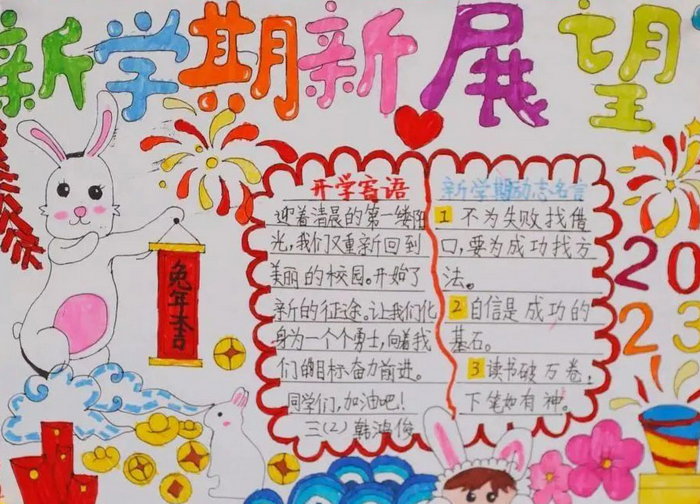 新学期新展望
兔年大吉
开学寄语
迎着清晨的第一缕阳
光,我们又重新回到
美丽的校园。开始了
新的征途。让我们化
身为一个个勇士,向着我
们的目标奋力前进。
同学们,加油吧!
三(2)韩俊
新学期动态名言
1 不为失败找借
口,要为成功找方
法。
2 自信是成功的
基石。
3 读书破万卷,
下笔如有神。
20
23